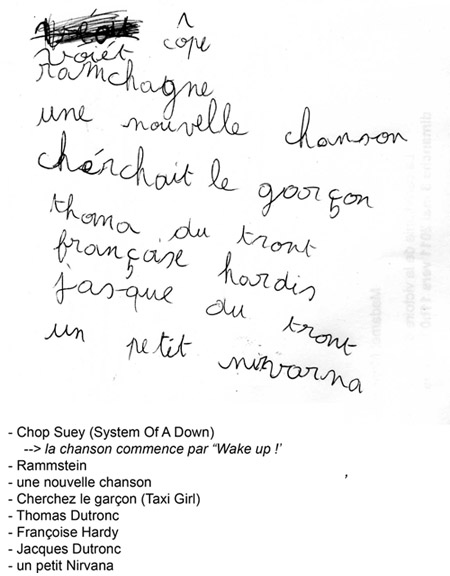 voiét cope
ramchagne
une nouvelle chanson
chérchait le garçon
thoma du tront
françaíse hardis
jasque du tront
un petit nirvarna
- Chop Suey (System Of A Down)
--> la chanson commence par “Wake up !’
- Rammstein
- une nouvelle chanson
- Cherchez le garçon (Taxi Girl)
- Thomas Dutronc
- Françoise Hardy
- Jacques Dutronc
- un petit Nirvana